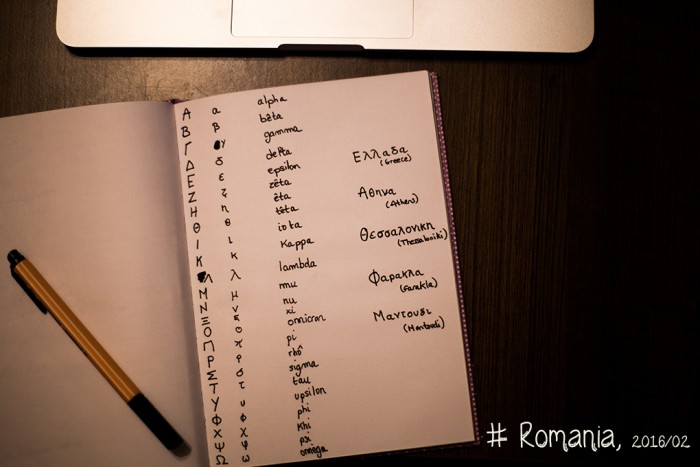 Α α alpha
Β β bêta
Γ γ gamma
Δ δ delta
Ε ε epsilon
Ζ ζ zêta
Η η êta
Θ θ têta
Ι ι iota
Κ κ kappa
Λ λ lambda
Μ μ mu
Ν ν nu
Ξ xi
Ο ο omicron
Π pi
Ρ ρ rhô
Σ σ sigma
Τ τ tau
Υ υ upsilon
Φ φ phi
Χ χ khi
Ψ ψ psi
Ω ω omega
Ελλαδα
(Greece)
Αθηνα
(Athens)
Θεσσαλονικη
(Thessaloniki)
Φαρακλα
(Farakla)
Μαντουδι
(Mantoudi)
# Romania, 2016/02